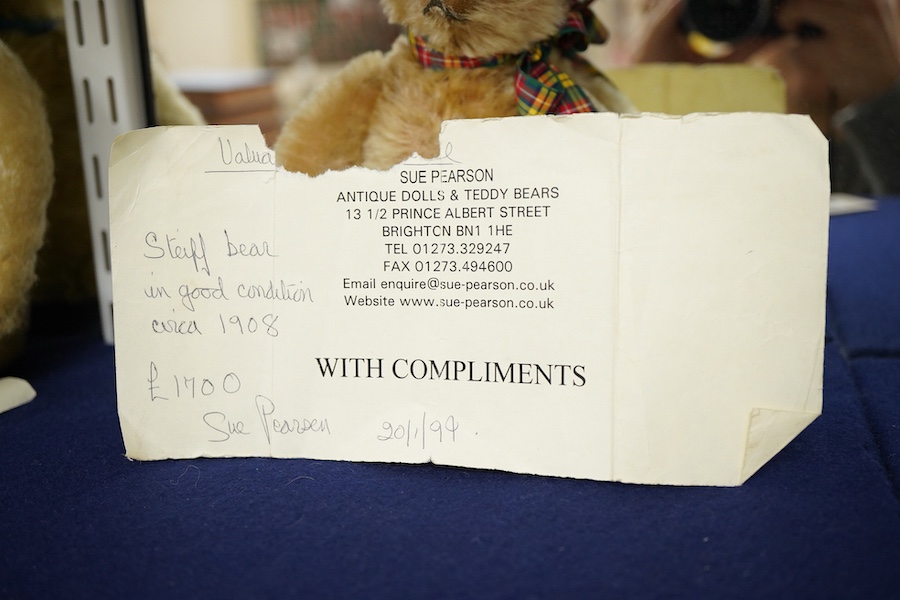 Valua
SUE PEARSON
ANTIQUE DOLLS & TEDDY BEARS
13 1/2 PRINCE ALBERT STREET
BRIGHTON BN1 1HE
TEL 01273.329247
FAX 01273.494600
Email enquire@sue-pearson.co.uk
Website www.sue-pearson.co.uk
Steiff bear
in good condition
circa 1908
£1700
WITH COMPLIMENTS
Sue Pearson 20/1/99.